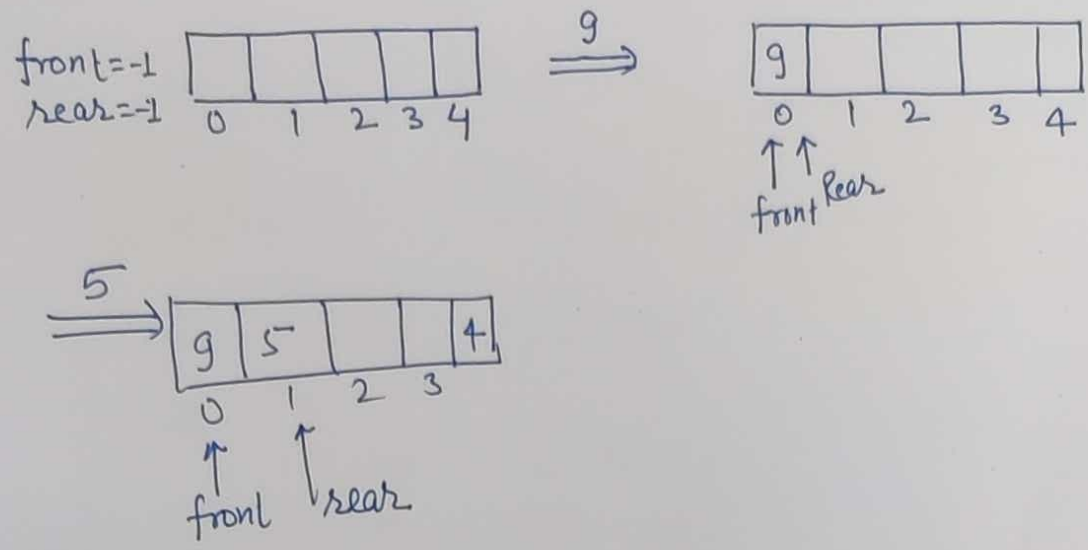 front=-1
rear=-1
0 1 2 3 4
9
9
0 1 2 3 4
front Rear
5
9 5 4
0 1 2 3
front rear